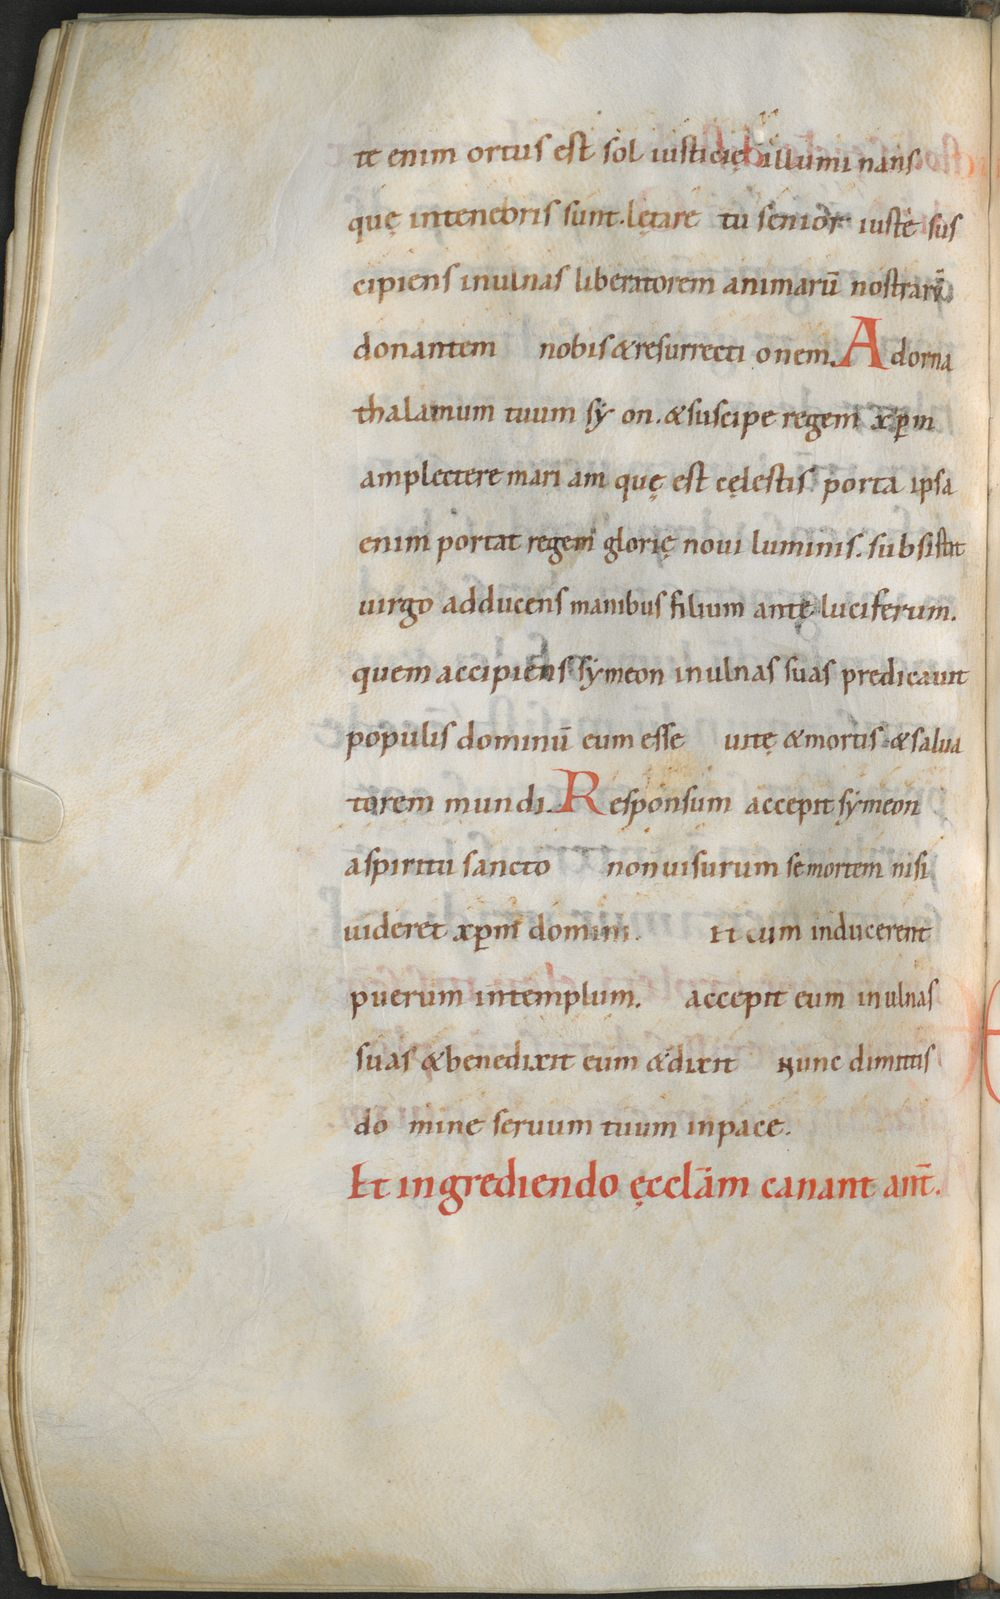 te enim ortus est sol iusticię illumi nans
quę intenebris sunt. lętare tu senior iuste sus
cipiens inulnas liberatorem animarū nostrarū
donantem nobis &resurrecti onem. Adorna
thalamum tuum sy on. &suscipe regem xp̄m
amplectere mari am quę est cęlestis porta ipsa
enim portat regem glorię noui luminis. subsistit
uirgo adducens manibus filium ante luciferum.
quem accipiens symeon inulnas suas predicauit
populis dominū eum esse uitę &mortis &salua
torem mundi. Responsum accepit symeon
aspiritu sancto nonuisurum semortem nisi
uideret xp̄m domini. Et cum inducerent
puerum intemplum. accepit eum inulnas
suas &benedixit eum &dixit Nunc dimittis
do mine seruum tuum inpace.
Et ingrediendo ęcclām canant ant̄.